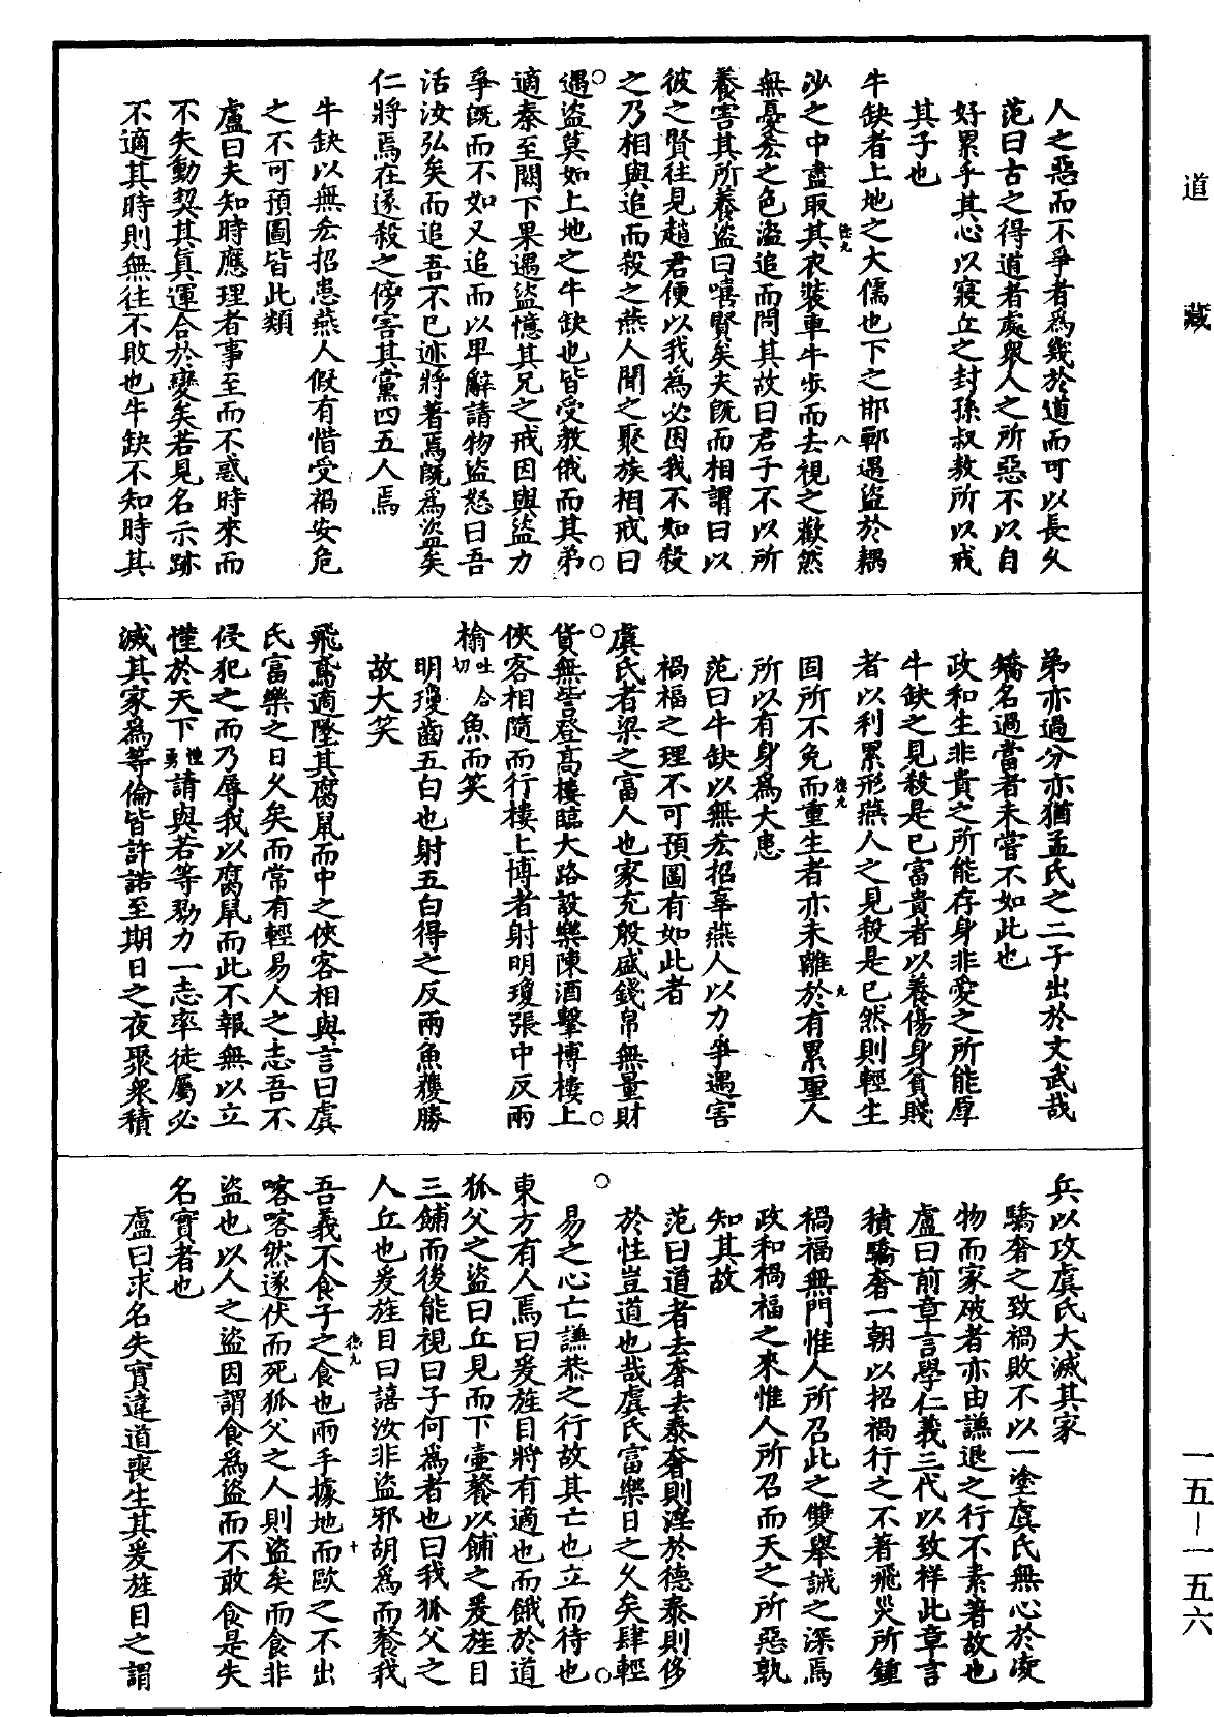 道藏
人之惡而不爭者為幾於道而可以長久
范曰古之得道者處眾人之所惡不以自
好累乎其心以寢丘之封孫叔敖所以戒
其子也
牛缺者上地之大儒也下之邯鄲遇盜於耦
沙之中盡取其衣裝車牛步而去視之歡然
無憂𠫤之色盜追而問其故曰君子不以所
養害其所養盜曰嘻賢矣夫既而相謂曰以
彼之賢往見趙君便以我為必困我不如殺
之乃相與追而殺之燕人聞之聚族相戒曰
遇盜莫如上地之牛缺也皆受教俄而其弟
適秦至關下果遇盜憶其兄之戒因與盜力
爭既而不如又追而以卑辭請物盜怒曰吾
活汝弘矣而追吾不已迹將著焉既為盜矣
仁將焉在遂殺之傍害其黨四五人焉
牛缺以無𠫤招患燕人假有惜受禍安危
之不可預圖皆此類
盧曰夫知時應理者事至而不惑時來而
不失動契其真運合於變矣若見名示跡
不適其時則無往不敗也牛缺不知時其
弟亦過分亦猶孟氏之二子出於文武哉
矯名過當者未嘗不如此也
政和生非貴之所能存身非愛之所能厚
牛缺之見殺是已富貴者以養傷身貧賤
者以利累形燕人之見殺是已然則輕生
固所不免而重生者亦未離於有累聖人
所以有身為大患
范曰牛缺以無𠫤招辜燕人以力爭遇害
禍福之理不可預圖有如此者
虞氏者梁之富人也家充殷盛錢帛無量財
貨無訾登高樓臨大路設樂陳酒擊博樓上
俠客相隨而行樓上博者射明瓊張中反兩
㯓吐合切魚而笑
明瓊齒五白也射五白得之反兩魚獲勝
故大笑
飛鳶適墜其腐鼠而中之俠客相與言曰虞
氏富樂之日久矣而常有輕易人之志吾不
侵犯之而乃辱我以腐鼠而此不報無以立
慬於天下慬勇請與若等勠力一志率徒屬必
滅其家為等倫皆許諾至期日之夜聚眾積
兵以攻虞氏大滅其家
驕奢之致禍敗不以一塗虞氏無心於凌
物而家破者亦由謙退之行不素著故也
盧曰前章言學仁義三代以致祥此章言
積驕奢一朝以招禍行之不著飛災所鍾
禍福無門惟人所召此之雙舉誡之深焉
政和禍福之來惟人所召而天之所惡孰
知其故
范曰道者去奢去泰奢則淫於德泰則侈
於性豈道也哉虞氏富樂日之久矣肆輕
易之心亡謙恭之行故其亡也立而待也
東方有人焉曰爰旌目將有適也而餓於道
狐父之盜曰丘見而下壺餐以餔之爰旌目
三餔而後能視曰子何為者也曰我狐父之
人丘也爰旌目曰譆汝非盜邪胡為而餐我
吾義不食子之食也兩手據地而歐之不出
喀喀然遂伏而死狐父之人則盜矣而食非
盜也以人之盜因謂食為盜而不敢食是失
名實者也
盧曰求名失實違道喪生其爰旌目之謂
一五－一五六